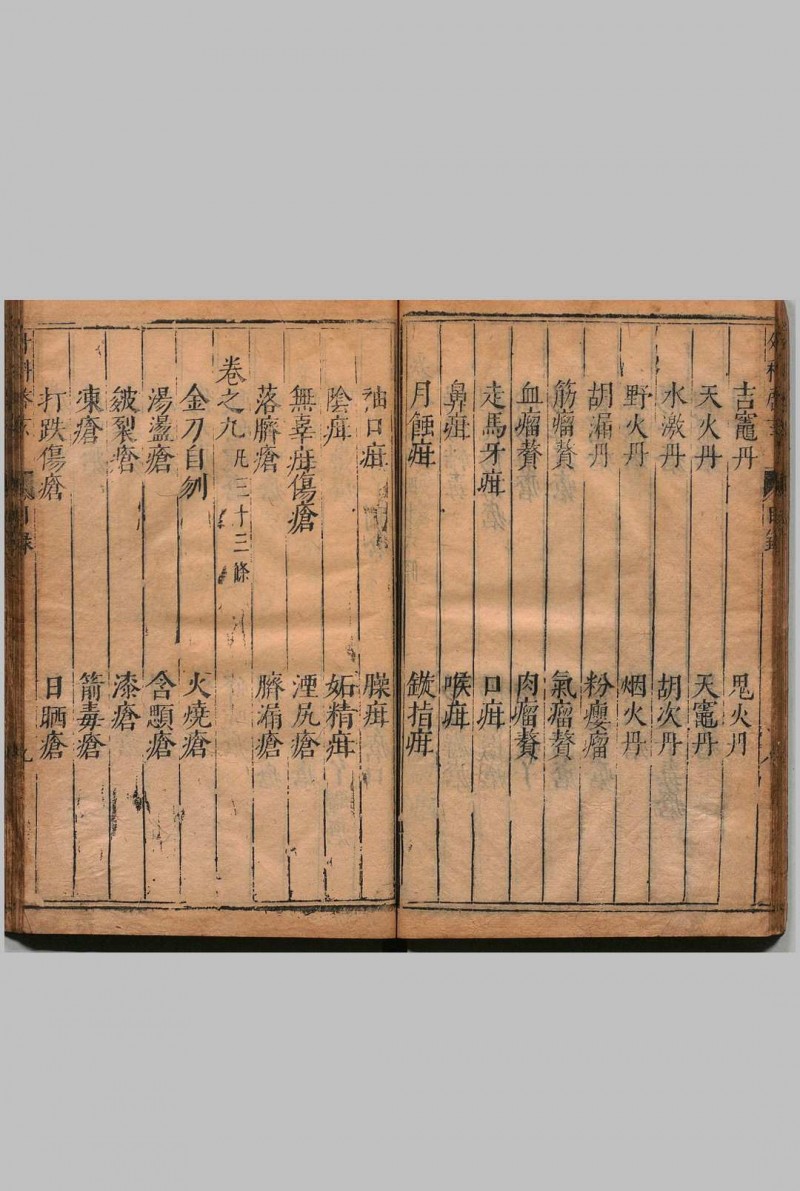 吉竈丹　鬼火丹
天火丹　天竈丹
水激丹　胡次丹
野火丹　烟火丹
胡漏丹　粉瘿瘤
筋瘤贅　氣瘤贅
血瘤贅　肉瘤贅
走馬牙疳　口疳
鼻疳　喉疳
月蝕疳　鏇指疳
袖口疳　臊疳
陰疳　妬精疳
無辜疳傷瘡　湮尻瘡
落臍瘡　臍漏瘡
卷之九 凡三十三條
金刀自刎　火燒瘡
湯盪瘡　含顋瘡
皴裂瘡　漆瘡
凍瘡　箭毒瘡
打跌傷瘡　日晒瘡
目錄